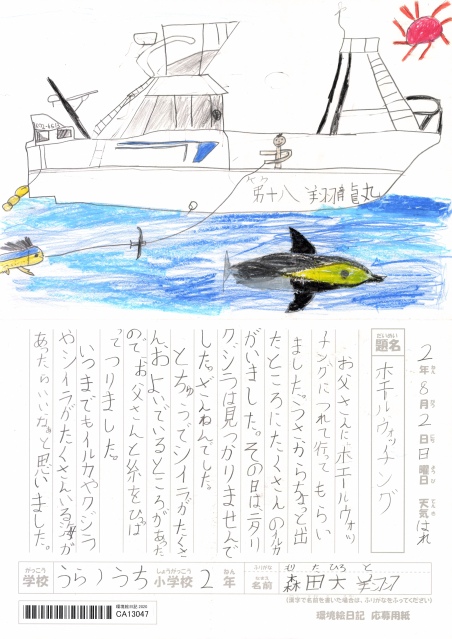 第十八 翔龍貞丸
だいめい
題名
ホエールウォッチング
2年8月2日日曜日 天気はれ
お父さんにホエールウォッ
チングにつれて行ってもらい
ました。うさからちょっと出
たところにたくさんのイルカ
がいました。その日は、ニタリ
クジラは見つかりませんで
した。ざんねんでした。
とちゅうでシイラがたくさ
んおよいでいるところがあった
ので、お父さんと糸をひっぱ
ってつりました。
いつまでもイルカやクジラ
やシイラがたくさんいる海が
あったらいいなぁと思いました。
がっこう
学校
うらのうち
しょうがっこう
小学校
2
ねん
年
ふりがな
もりた ひろと
なまえ
名前
森田大翔
(漢字で名前を書いた場合は、ふりがなをふってください)
環境絵日記 2020
CA13047
環境絵日記 応募用紙